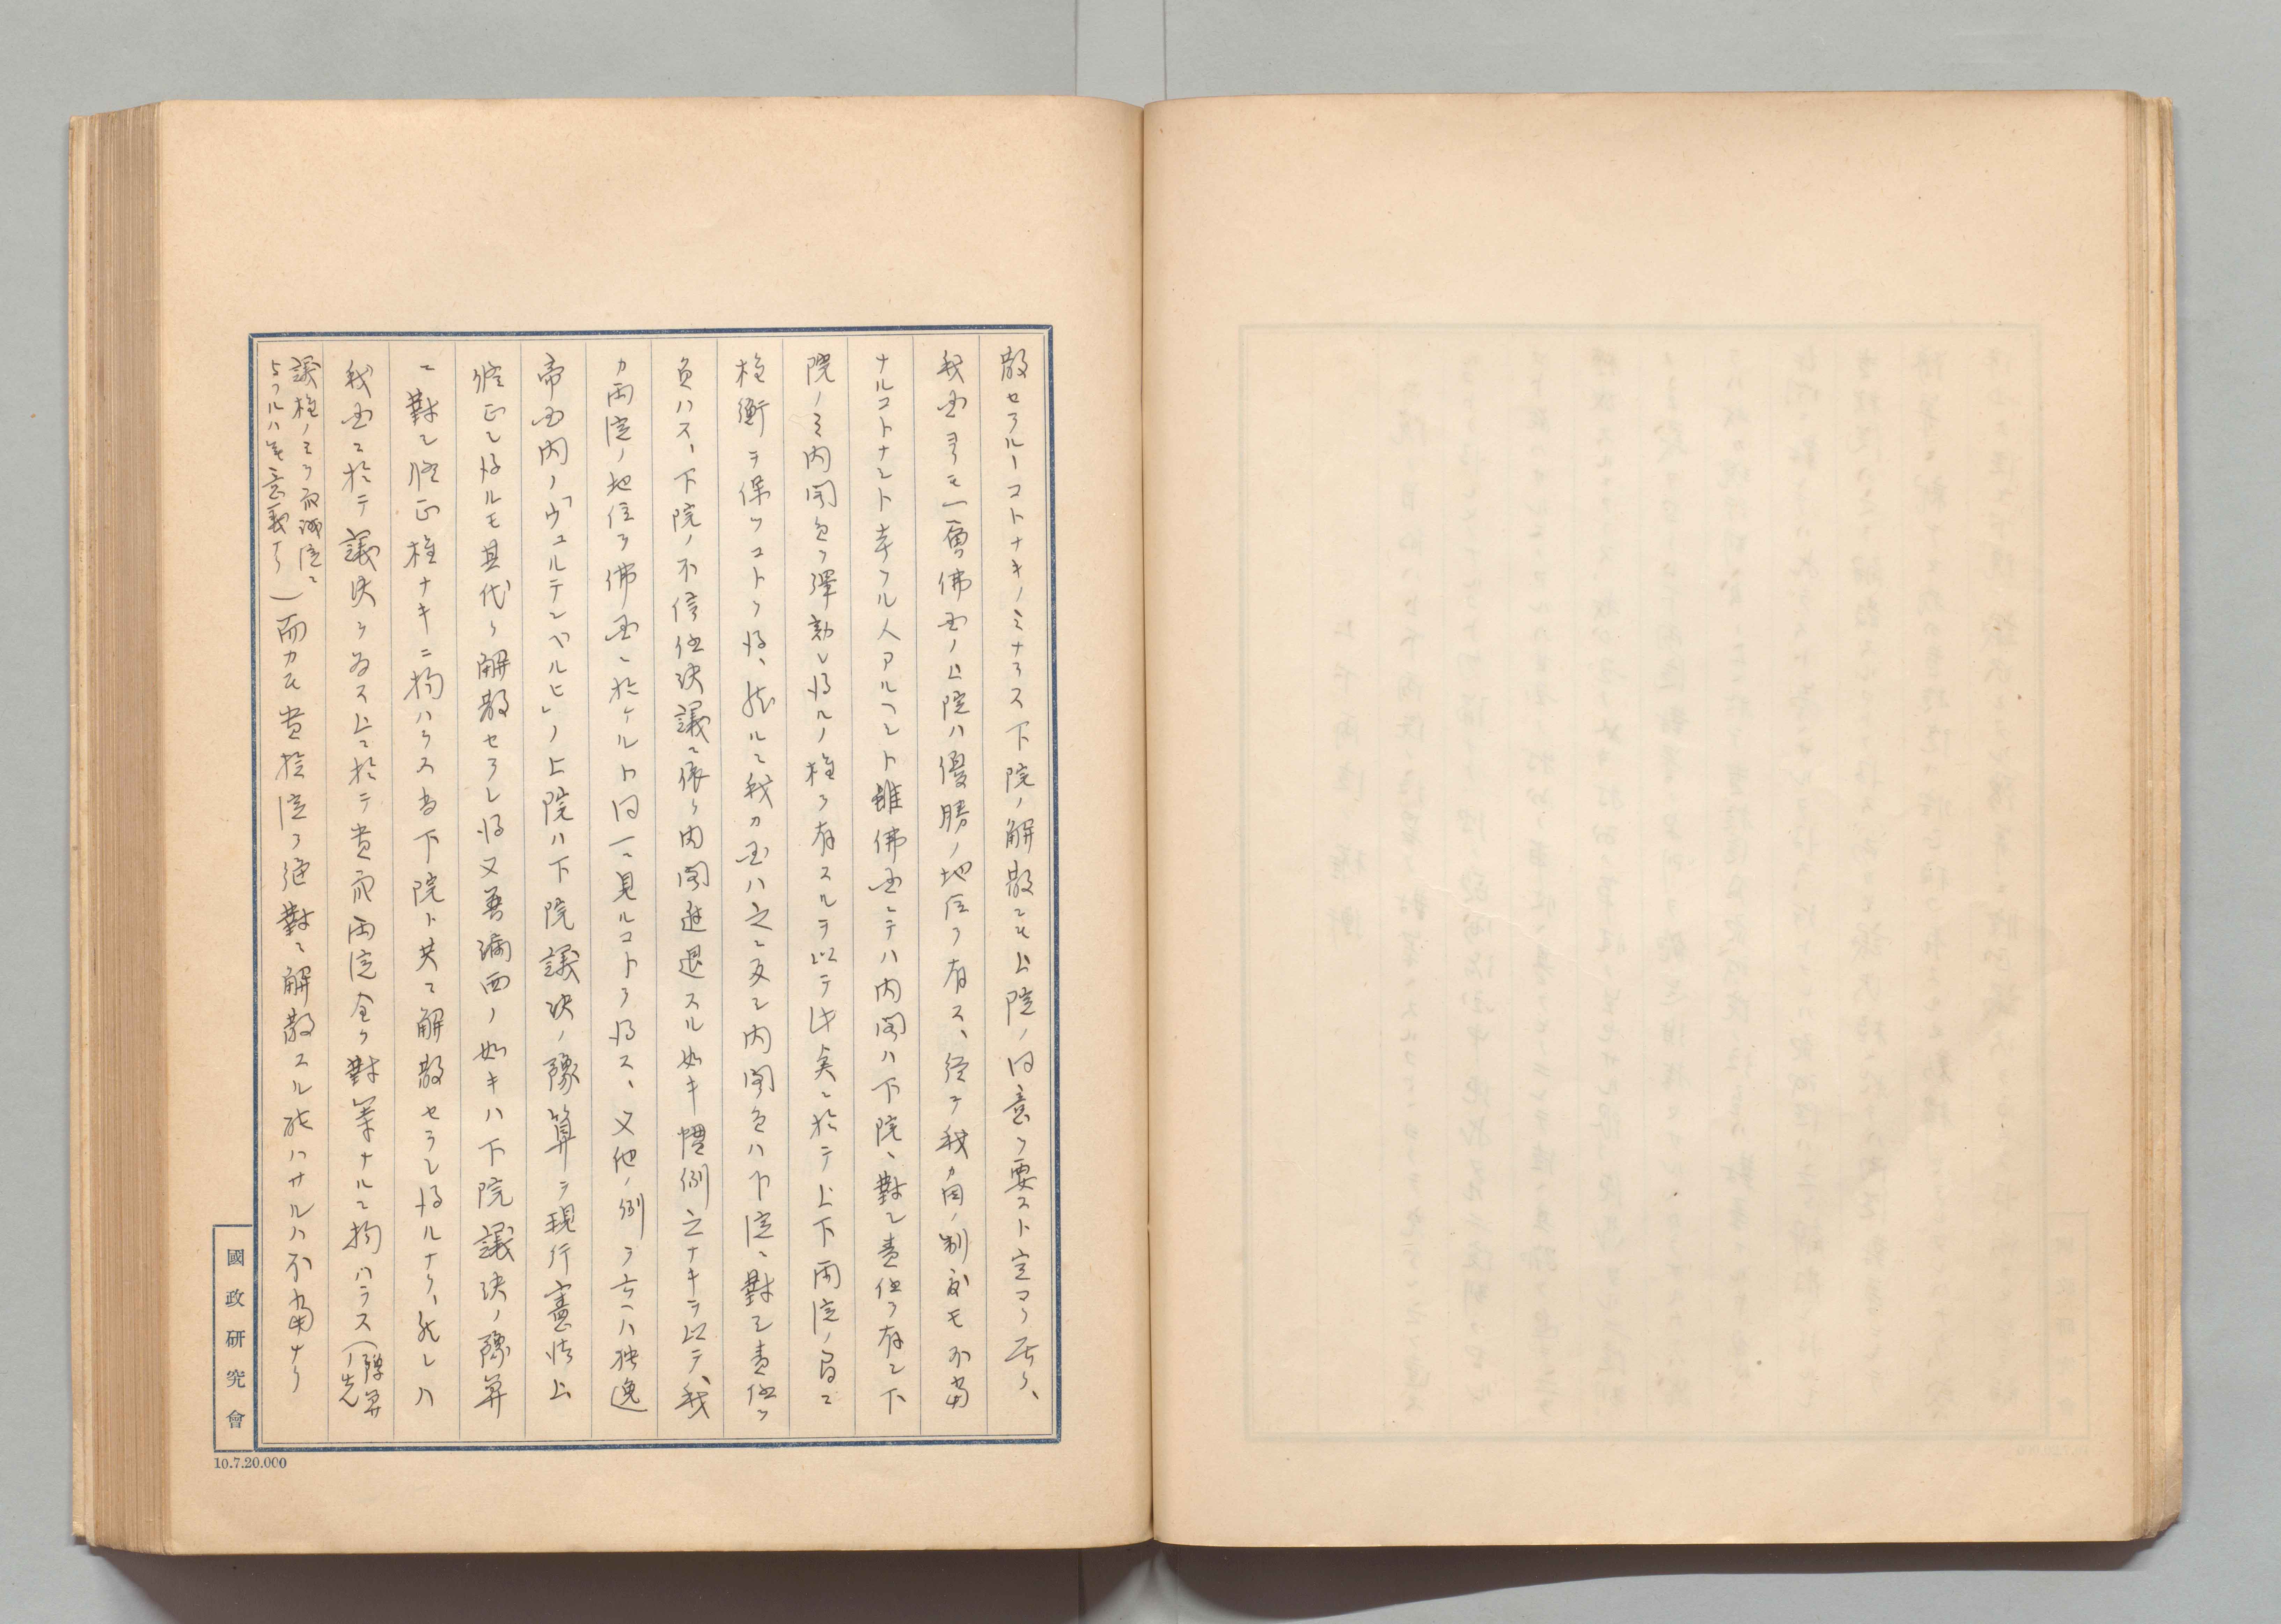 散セラルーコトナキノミナラス下院ノ解散ニモ上院ノ同意ヲ要スト定マリ居リ、
我国ヨリモ一層佛国ノ上院ハ優勝ノ地位ヲ有ス、経テ我カ国ノ制度モ不當
ナルコトナシト幸フル人アルヘシト雖佛国ニテハ内閣ハ下院ニ對シ責任ヲ有シ下
院ノミ内閣員ヲ弾劾シ得ルノ権ヲ有スルヲ以テ此矣ニ於テ上下両院ノ間ニ
権衡ヲ保ツコトヲ得、然ルニ我カ国ハ之ニ反シ内閣員ハ下院ニ對シ責任ヲ
負ハス、下院ノ不信任決議ニ依リ内閣進退スル如キ慣例之ナキヲ以テ、我
カ両院ノ地位ヲ佛国ニ於ケルト同一ニ見ルコトヲ得ス、又他ノ例ヲ云ヘハ独逸
帝国内ノ「ヴュルテンベルヒ」ノ上院ハ下院議決ノ豫算ヲ現行憲法上
修正シ得ルモ其代リ解散セラレ得又普漏西ノ如キハ下院議決ノ豫算
ニ對シ修正権ナキニ拘ハラス尚下院ト共ニ解散セラレ得ルナリ、然レハ
我国ニ於テ議決ヲ為ス上ニ於テ貴衆両院全ク對等ナルニ拘ハラス（豫算
ノ先
議権ノミヲ衆議院ニ
與フルハ無意義ナリ）而カモ貴族院ヲ絶對ニ解散スル能ハサルハ不當ナリ
國政研究會
10.7.20.000